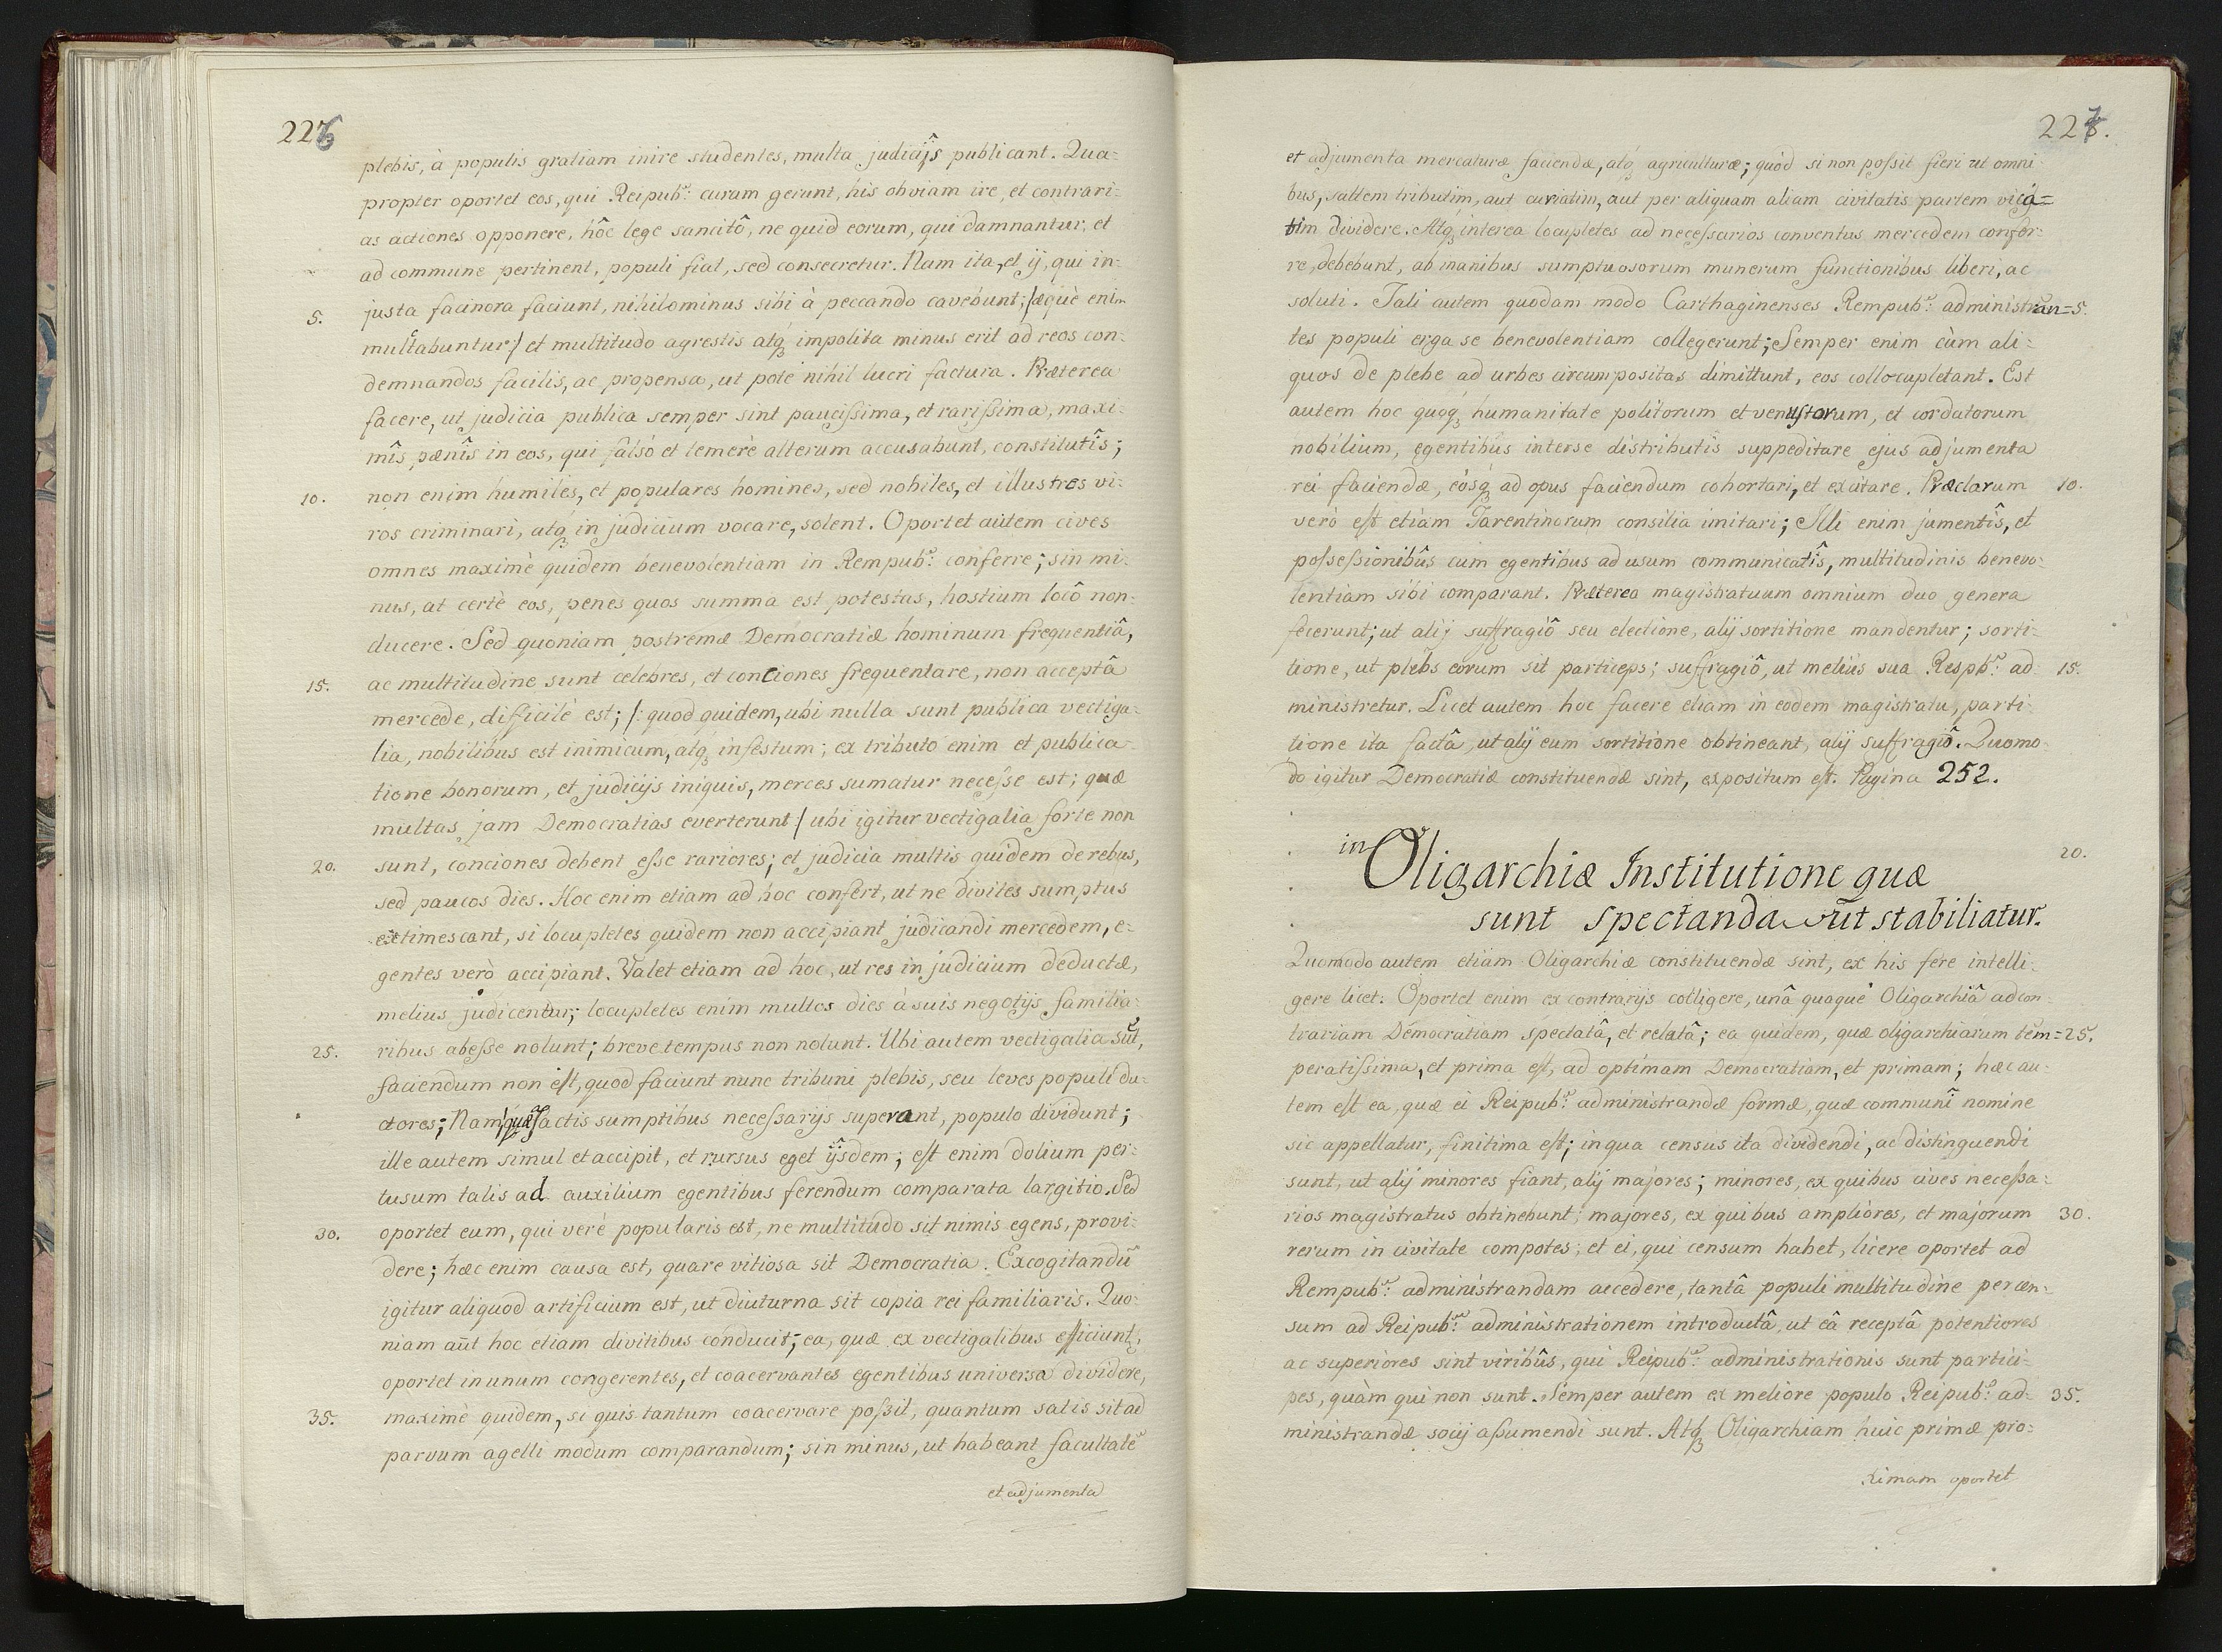 226
plebis, à populis gratiam inire studentes, multa judicijs publicant. Qua=
propter oportet eos, qui Reipub: curam gerunt, his obviam ire, et contrari=
as actiones opponere, hôc lege sancitô, ne quid eorum, qui damnantur, et
ad commune pertinent, populi fiat, sed consecretur. Nam ita, et ij, qui in=
5. justa facinora faciunt, nihilominus sibi à peccando cavebunt; /æquè enim
multabuntur:/ et multitudo agrestis atq impolita minus erit ad reos con=
demnandos facilis, ac propensa, ut pote nihil lucri factura. Præterea
facere, ut judicia publica semper sint paucissima, et rarissima, maxi=
mîs pænîs in eos, qui falsò et temerè alterum accusabunt, constitutîs;
10. non enim humiles, et populares homines, sed nobiles, et illustres vi=
ros criminari, atq in judicium vocare, solent. Oportet autem cives
omnes maximè quidem benevolentiam in Rempub: conferre; sin mi=
nus, at certè eos, penes quos summa est potestas, hostium locô non
ducere. Sed quoniam postremæ Democratiæ hominum frequentiâ,
15. ac multitudine sunt celebres, et conciones frequentare, non acceptâ
mercede, difficilè est; /: quod quidem, ubi nulla sunt publica vectiga=
lia, nobilibus est inimicum, atq infestum; ex tributo enim et publica=
tione bonorum, et judicijs iniquis, merces sumatur necesse est; quæ
multas jam Democratias everterunt :/ ubi igitur vectigalia forte non
20. sunt, conciones debent esse rariores; et judicia multis quidem de rebus,
sed paucos dies. Hoc enim etiam ad hoc confert, ut ne divites sumptus
extimescant, si locupletes quidem non accipiant judicandi mercedem, e=
gentes verò accipiant. Valet etiam ad hoc, ut res in judicium deductæ,
melius judicentur; locupletes enim multos dies à suis negotijs familia=
25. ribus abesse nolunt; breve tempus non nolunt. Ubi autem vectigalia sūt,
faciendum non est, quod faciunt nunc tribuni plebis, seu leves populi du=
ctores; Nam quæ factis sumptibus necessarijs superant, populo dividunt;
ille autem simul et accipit, et rursus eget ijsdem; est enim dolium per=
tusum talis ad auxilium egentibus ferendum comparata largitio. Sed
30. oportet eum, qui verè popularis est, ne multitudo sit nimis egens, provi=
dere; hæc enim causa est, quare vitiosa sit Democratia. Excogitandū
igitur aliquod artificium est, ut diuturna sit copia rei familiaris. Quo=
niam aūt hoc etiam divitibus conducit; ea, quæ ex vectigalibus efficiunt,
oportet in unum congerentes, et coacervantes egentibus universa dividere,
35. maximè quidem, si quis tantum coacervare possit, quantum satis sit ad
parvum agelli modum comparandum; sin minus, ut habeant facultatē
et adjumenta
227.
et adjumenta mercaturæ faciendæ, atq agriculturæ; quòd si non possit fieri ut omni
bus, saltem tributim, aut curiatim, aut per aliquam aliam civitatis partem vicà=
tim dividere. Atq interea locupletes ad necessarios conventus mercedem confer=
re, debebunt, ab inanibus sumptuosorum munerum functionibus liberi, ac
soluti. Tali autem quodam modo Carthaginenses Rempub: administran= 5.
tes populi erga se benevolentiam collegerunt; Semper enim cùm ali=
quos de plebe ad urbes circumpositas dimittunt, eos collocupletant. Est
autem hoc quoq humanitate politorum et venustorum, et cordatorum
nobilium, egentibûs interse distributîs suppeditare ejus adjumenta
rei faciendæ, eosq ad opus faciendum cohortari, et excitare. Præclarum 10.
verò est etiam Tarentinorum consilia imitari; Illi enim jumentîs, et
possessionibûs cum egentibus ad usum communicatîs, multitudinis benevo=
lentiam sibi comparant. Præterea magistratuum omnium duo genera
fecerunt; ut alij suffragiô seu electione, alij sortitione mandentur; sorti=
tione, ut plebs eorum sit particeps; suffragiô, ut melius sua Respb: ad 15.
ministretur. Licet autem hoc facere etiam in eodem magistratu, parti=
tione ita factâ, ut alij eum sortitione obtineant, alij suffragiô. Quomo=
do igitur Democratiæ constituendæ sint, expositum est. Pagina 252.
in Oligarchiæ Institutione quæ 20.
sunt spectanda ūt stabiliatur.
Quomodo autem etiam Oligarchiæ constituendæ sint, ex his fere intelli=
gere licet. Oportet enim ex contrarijs colligere, unâ quaque Oligarchiâ ad con=
trariam Democratiam spectatâ, et relatâ; ea quidem, quæ oligarchiarum tem= 25.
peratissima, et prima est, ad optimam Democratiam, et primam; hæc au=
tem est ea, quæ ei Reipub: administrandæ formæ, quæ communî nomine
sic appellatur, finitima est; in qua census ita dividendi, ac distinguendi
sunt, ut alij minores fiant, alij majores; minores, ex quibus cives necessa=
rios magistratus obtinebunt; majores, ex quibus ampliores, et majorum 30.
rerum in civitate compotes; et ei, qui censum habet, licere oportet ad
Rempub: administrandam accedere, tantâ populi multitudine per cen=
sum ad Reipub: administrationem introductâ, ut eâ receptâ potentiores
ac superiores sint viribûs, qui Reipub: administrationis sunt partici=
pes, quàm qui non sunt. Semper autem ex meliore populo Reipub: ad= 35.
ministrandæ socij assumendi sunt. Atq Oligarchiam huic primæ pro=
ximam oportet